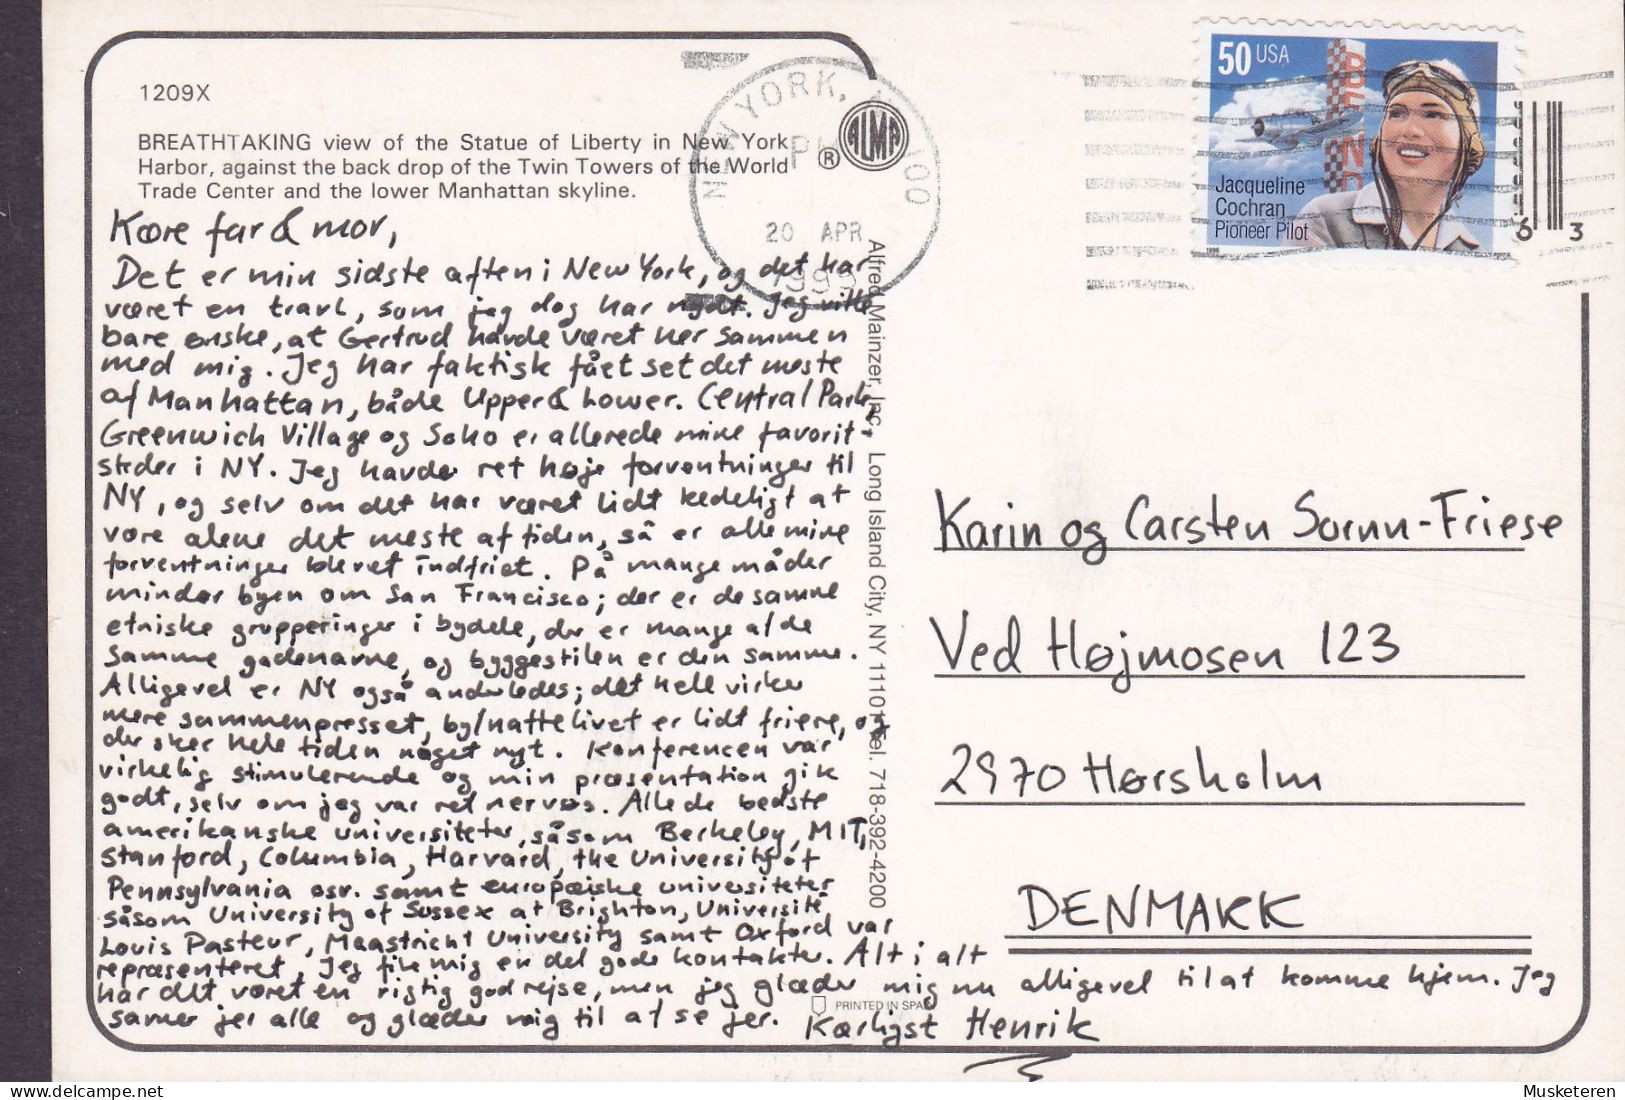 1209X
BREATHTAKING view of the Statue of Liberty in New York
Harbor, against the back drop of the Twin Towers of the World
Trade Center and the lower Manhattan skyline.
ALMA
®
NEW YORK, N 100
PM
20 APR
1999
50 USA
Jacqueline
Cochran
Pioneer Pilot
1996
63
Kære far & mor,
Det er min sidste aften i New York, og det har
været en travl, som jeg dog har nydt. Jeg ville
bare ønske, at Gertrud havde været her sammen
med mig. Jeg har faktisk fået set det meste
af Manhattan, både Upper & Lower. Central Park,
Greenwich Village og Soho er allerede mine favorit-
steder i NY. Jeg havde ret høje forventninger til
NY, og selv om det har været lidt kedeligt at
være alene det meste af tiden, så er alle mine
forventninger blevet indfriet. På mange måder
minder byen om San Francisco; der er de samme
etniske grupperinger i bydele, der er mange af de
samme gadenavne, og byggestilen er den samme.
Alligevel er NY også anderledes; det hele virker
mere sammenpresset, by/nattelivet er lidt friere, og
der sker hele tiden noget nyt. Konferencen var
virkelig stimulerende og min præsentation gik
godt, selv om jeg var ret nervøs. Alle de bedste
amerikanske universiteter, såsom Berkeley, MIT,
Stanford, Columbia, Harvard, the University of
Pennsylvania osv. samt europæiske universiteter
såsom University of Sussex at Brighton, Université
Louis Pasteur, Maastricht University samt Oxford var
repræsenteret, Jeg fik mig en del gode kontakter. Alt i alt
har det været en rigtig god rejse, men jeg glæder mig nu alligevel til at komme hjem. Jeg
savner jer alle og glæder mig til at se jer. Kærligst Henrik
Alfred Mainzer, Inc., Long Island City, NY 11101 Tel. 718-392-4200
PRINTED IN SPAIN
Karin og Carsten Sornn-Friese
Ved Højmosen 123
2970 Hørsholm
DENMARK
delcampe.net
Musketeren